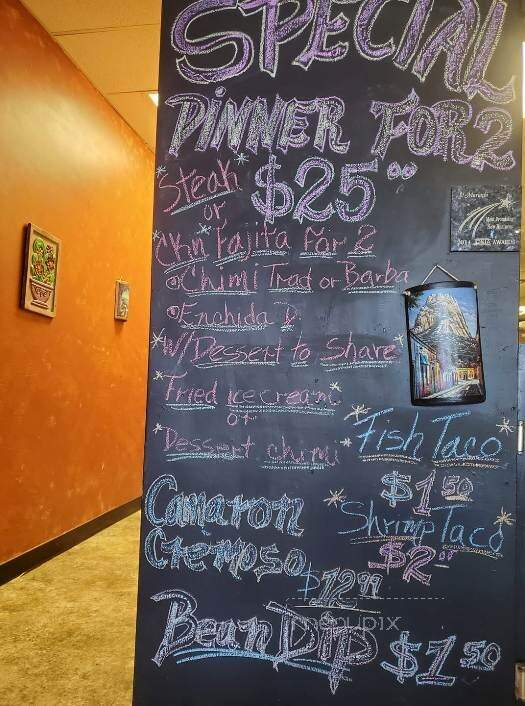 SPECIAL
DINNER FOR 2
$25.00
Steak
or
Ckn Fajita For 2
Chimi Trad or Barba
Enchida D.
W/Dessert to Share
Fried Ice cream
or
Dessert chimi
Fish Taco
$1 50
Shrimp Taco
$2 00
Camaron
Cremoso
$12 99
Bean Dip $1 50
menupix